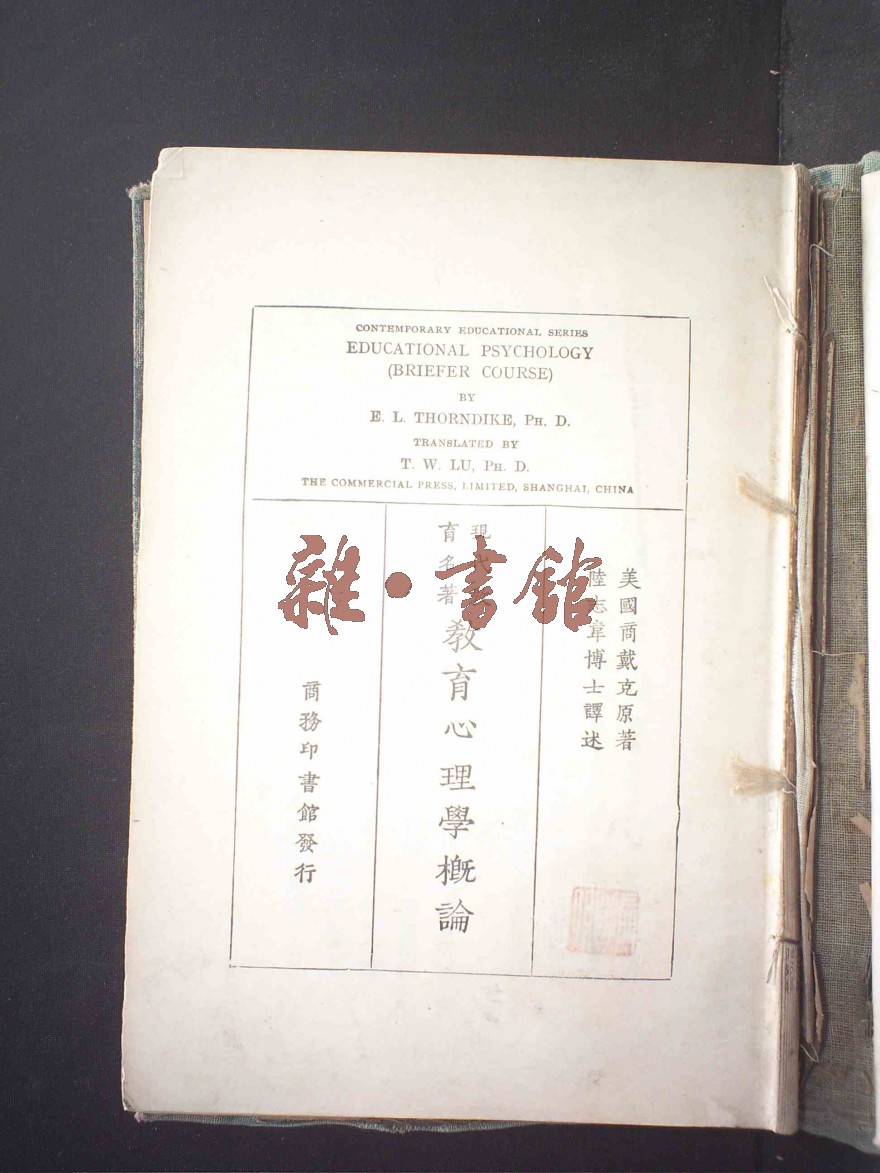 CONTEMPORARY EDUCATIONAL SERIES
EDUCATIONAL PSYCHOLOGY
(BRIEFER COURSE)
BY
E. L. THORNDIKE, PH. D.
TRANSLATED BY
T. W. LU, PH. D.
THE COMMERCIAL PRESS, LIMITED, SHANGHAI, CHINA
美國商戴克原著
陸志韋博士譯述
現代
育名著
教育心理學概論
商務印書館發行
雜·書館